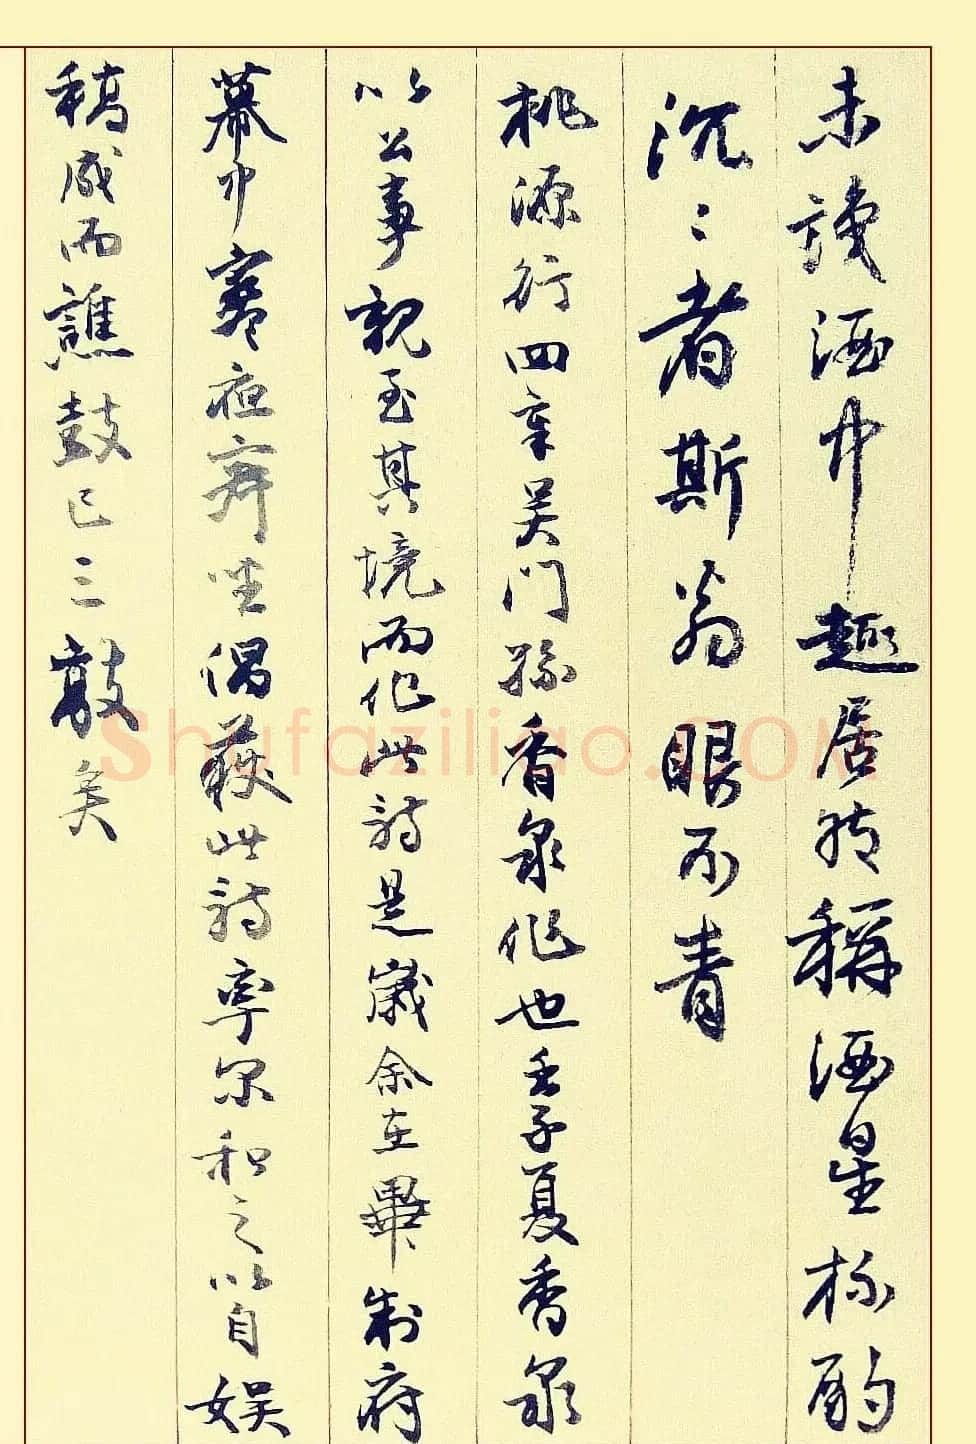 未識酒中趣居然稱酒星杯酌
沉〻者斯翁眼不青
桃源行四章吴門孫香泉作也壬子夏香泉
以公事親至其境而作此詩是歲余在畢制府
幕中寒夜齋坐偶獲此詩率尔和之以自娱
稿成而譙鼓已三敲矣
Shufaziliao.COM